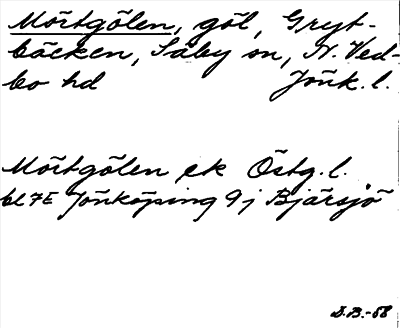 Mörtgölen, göl, Gryt-
bäcken, Säby sn, N. Ved-
bo hd Jönk. l.
Mörtgölen ek Östg. l.
bl 7E Jönköping 9j Bjärsjö
S.B.-68